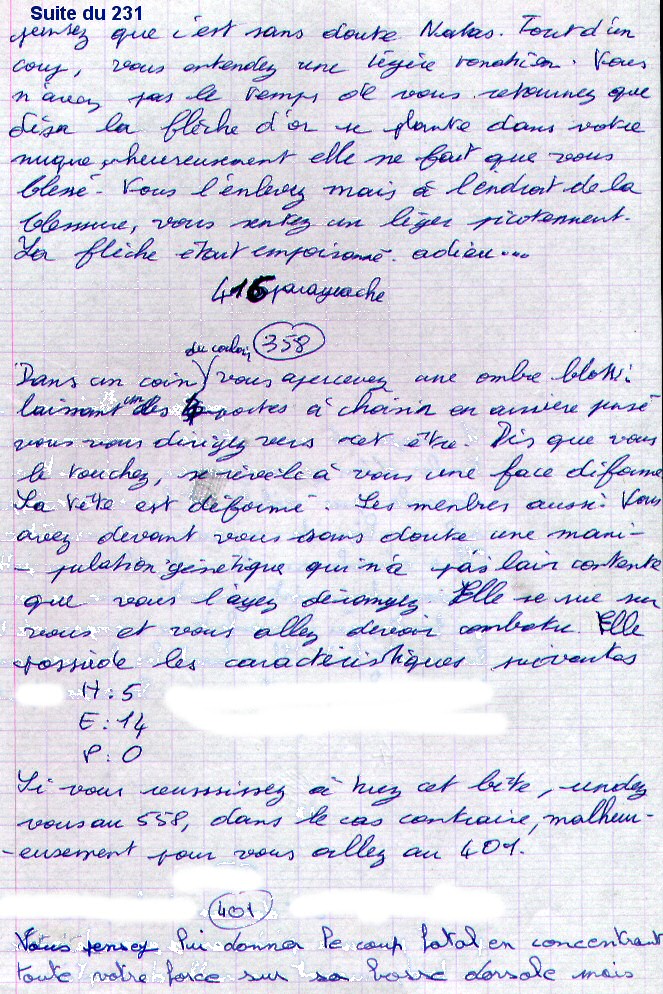 Suite du 231
pensez que c'est sans doute Natas. Tout d'un
coup, vous entendez une légère rotation. Vous
n'avez pas le temps de vous retournez que
déja la flèche d'or se plante dans votre
nuque, heureusement elle ne fait que vous
blessé. Vous l'enlevez mais à l'endroit de la
blessure, vous sentez un léger picotement.
La flèche étant empoisonné. adieu...
416 paragraphe
358
du couloir
Dans un coin vous apercevez une ombre
laissant des portes à choisir en arrière
vous vous dirigez vers cet être. Dès que vous
le touchez, se révèle à vous une face déformé
La tête est déformé. Les menbres aussi. Vous
avez devant vous sans doute une mani-
-pulation génétique qui n'a pas lair contente
que vous l'ayez dérangez. Elle se rue sur
vous et vous allez devoir combatre. Elle
possède les caractéristiques suivantes
H : 5
E : 14
P : 0
Si vous reusssissez à tuez cet bête, rendez
vous au 558, dans le cas contraire, malheur-
-eusement pour vous allez au 401.
401
Vous pensez lui donner le coup fatal en concentrant
toute votre force sur sa bosse dorsale mais